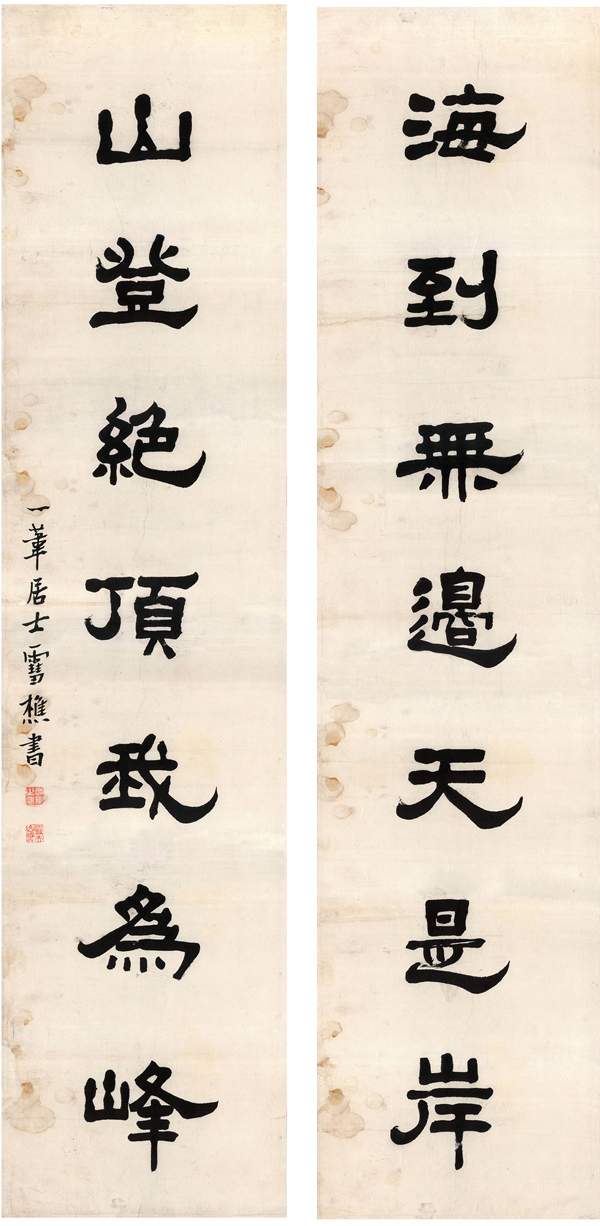 海到無邊天是岸
山登絕頂我為峰
一葦居士雪樵書